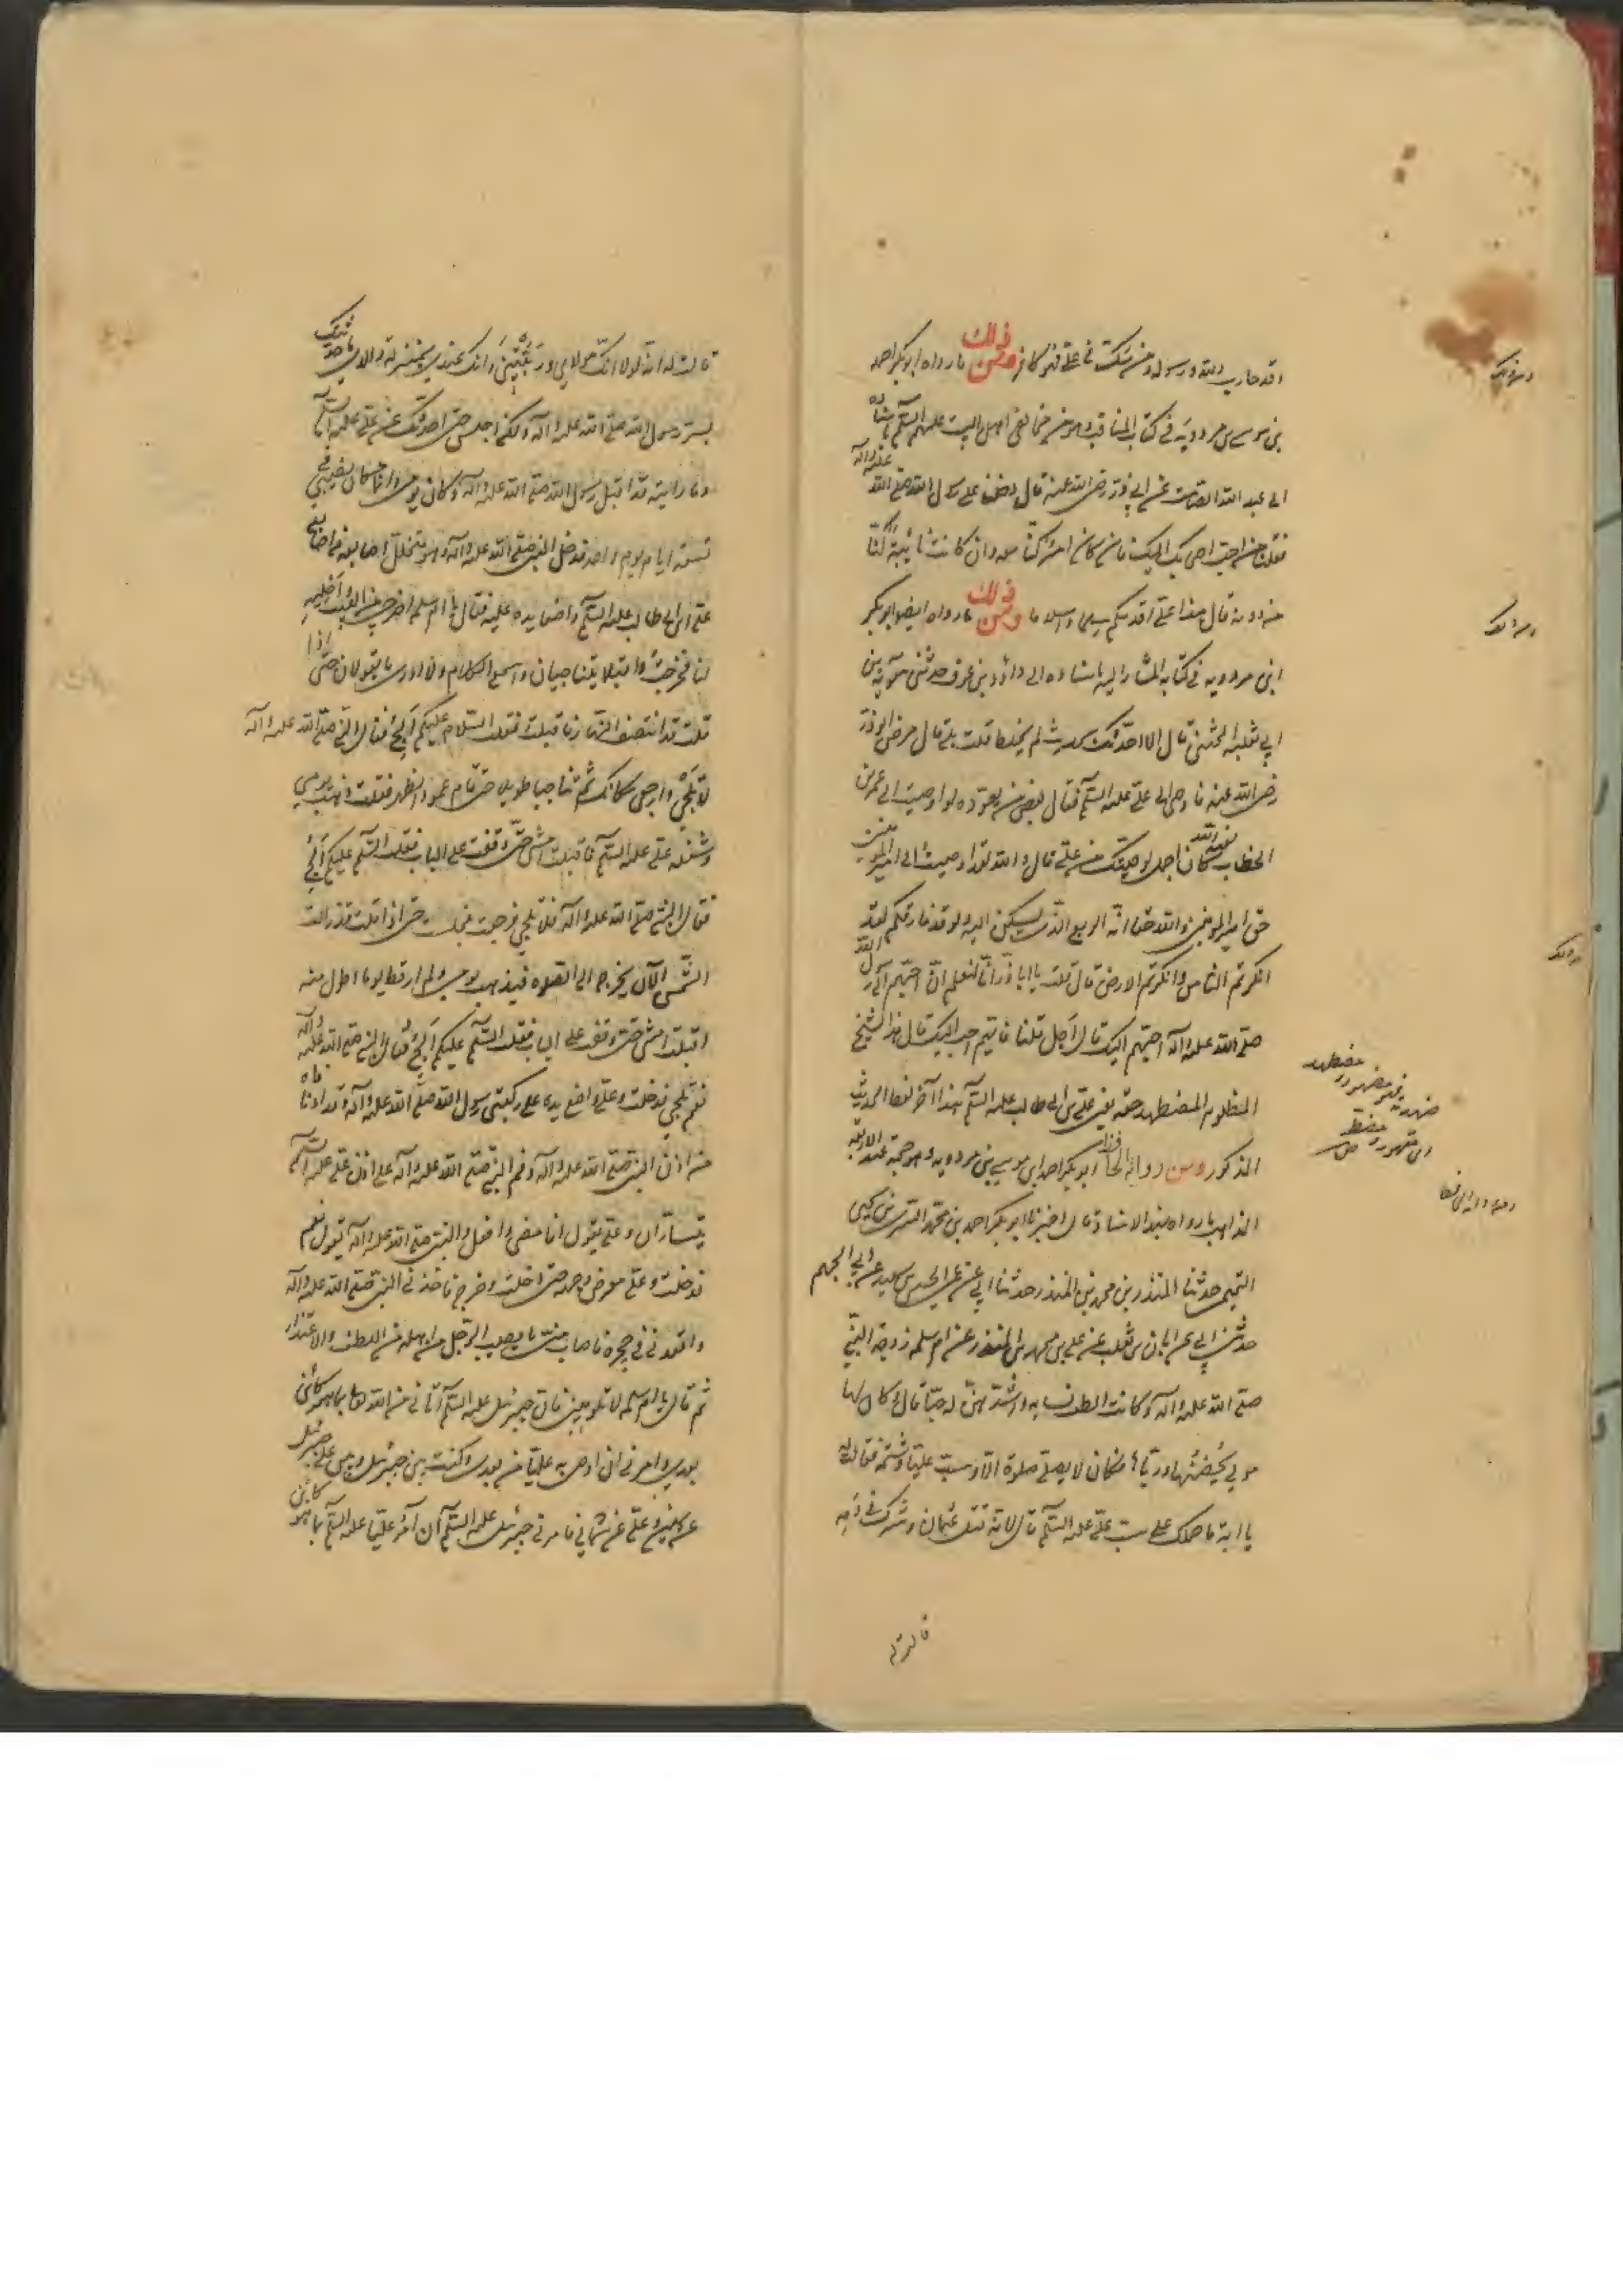 فقد حارب الله ورسوله ومن شك في علي فهو كافر ومن ذلك ما رواه ابو بكر احمد
بن موسى بن مردويه في كتاب المناقب وهو من مخالفي اهل البيت عليهم السلم باسناده
الى عبد الله الصامت عن ابي ذر رضي الله عنه قال دخلنا على رسول الله صلى الله عليه وآله
فقلنا من احب اصحابك اليك فان كان امر كنا معه وان كانت نائبة كنا
من دونه قال هذا علي اقدمكم سلما واسلاما ومن ذلك ما رواه ايضا ابو بكر
ابن مردويه في كتابه المشار اليه باسناده الى داود بن ابي عوف حدثني معوية بن
ابي ثعلبة الخشني قال الا احدثك بحديث لم يختلط قلت بلى قال مرض ابو ذر
رضي الله عنه فاوصى الى علي عليه السلم فقال بعض من يعوده لو اوصيت الى عمر بن
الخطاب كان اجمل لوصيتك من علي قال والله لقد اوصيت الى امير المؤمنين
حق امير المؤمنين والله حقا انه الربيع الذي يسكن اليه ولو قد فارقكم لقد
انكرتم الناس وانكرتم الارض قال قلت يا ابا ذر انا لنعلم ان احبهم الى رسول الله
صلى الله عليه وآله احبهم اليك قال اجل قلنا فايهم احب اليك قال هذا الشيخ
المظلوم المضطهد حقه يعني علي بن ابي طالب عليه السلم هذا آخر لفظ الحديث
المذكور ومن رواية الحافظ ابو بكر احمد بن موسى بن مردويه وهو حجة عند الاربعة
المذاهب ما رواه بهذا الاسناد قال اخبرنا ابو بكر احمد بن محمد السري بن يحيى
التميمي حدثنا المنذر بن محمد بن المنذر حدثنا ابي عن عمي الحسين بن سعيد عن ابي الجهم
حدثني ابي عن ابان بن تغلب عن علي بن محمد بن المنكدر عن ام سلمة زوجة النبي
صلى الله عليه وآله وكانت الطف نسائه واشدهن له حبا قال وكان لها
مولى يحضنها ورباها فكان لا يصلي صلوة الا وسب عليا وشتمه فقالت له
يا ابة ما حملك على سب علي عليه السلم قال لانه قتل عثمان وشرك في دمه
قالت له
قالت له انه لولا انك مولاي وربيتني وانك عندي بمنزلة والدي ما حدثتك
بسر رسول الله صلى الله عليه وآله ولكن اجلس حتى احدثك عن علي عليه السلم
وما رايته قد اقبل رسول الله صلى الله عليه وآله وكان يومي وانما كان نصيبي
تسعة ايام يوم واحد فدخل النبي صلى الله عليه وآله وهو مخلل اصابعه في اصابع
علي بن ابي طالب عليه السلم واضعا يده عليه فقال يا ام سلمة اخرجي من البيت واخليه
لنا فخرجت واقبلا يتناجيان واسمع الكلام ولا ادري ما يقولان حتى اذا
قلت قد انتصف النهار فاقبلت فقلت السلام عليكم االج فقال النبي صلى الله عليه وآله
لا تلجي وارجعي مكانك ثم تناجيا طويلا حتى قام عمود الظهر فقلت ذهب يومي
وشغله علي عليه السلم فاقبلت امشي حتى وقفت على الباب فقلت السلم عليكم االج
فقال النبي صلى الله عليه وآله فلا تلجي فرجعت فجلست حتى اذا قلت قد زالت
الشمس الآن يخرج الى الصلوة فيذهب يومي ولم ار قط يوما اطول منه
اقبلت امشي حتى وقفت على الباب فقلت السلم عليكم االج فقال النبي صلى الله عليه وآله
نعم تلجي فدخلت وعلي واضع يده على ركبتي رسول الله صلى الله عليه وآله قد ادنا فاه
من اذن النبي صلى الله عليه وآله وفم النبي صلى الله عليه وآله على اذن علي عليه السلم
يتساران وعلي يقول افامضي وافعل والنبي صلى الله عليه وآله يقول نعم
فدخلت وعلي معرض وجهه حتى دخلت وخرج فاخذني النبي صلى الله عليه وآله
واقعدني في حجره فاصاب مني ما يصيب الرجل من اهله من اللطف والاعتذار
ثم قال يا ام سلمة لا تلوميني فان جبرئيل عليه السلم اتاني من الله بما هو كائن
بعدي وامرني ان اوصي به عليا من بعدي وكنت بين جبرئيل وبين علي جبرئيل
عن يميني وعلي عن شمالي فامرني جبرئيل عليه السلم ان آمر عليا عليه السلم بما هو كائن